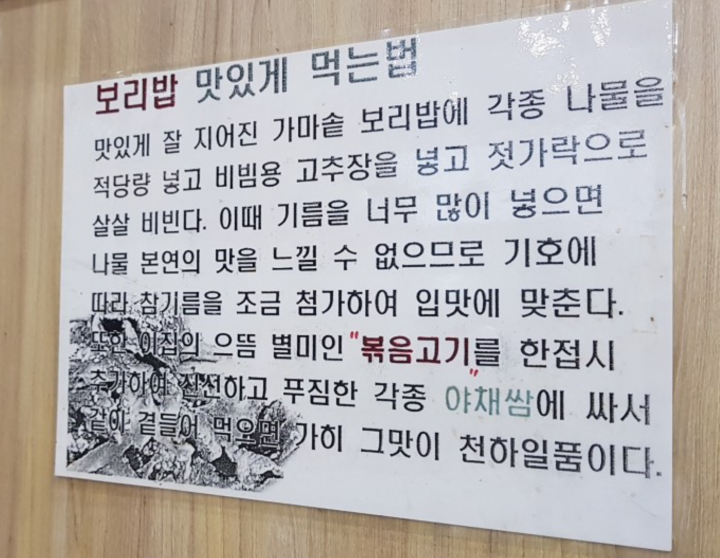 보리밥 맛있게 먹는법
맛있게 잘 지어진 가마솥 보리밥에 각종 나물을
적당량 넣고 비빔용 고추장을 넣고 젓가락으로
살살 비빈다. 이때 기름을 너무 많이 넣으면
나물 본연의 맛을 느낄 수 없으므로 기호에
따라 참기름을 조금 첨가하여 입맛에 맞춘다.
또한 이집의 으뜸 별미인 "볶음고기"를 한접시
추가하여 신선하고 푸짐한 각종 야채쌈에 싸서
같이 곁들어 먹으면 가히 그맛이 천하일품이다.